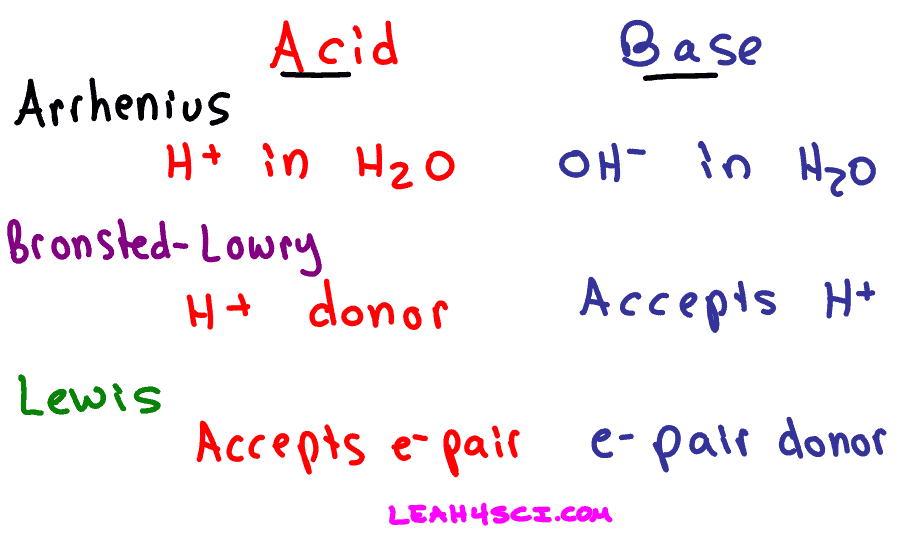 Acid Base
Arrhenius
H+ in H2O OH- in H2O
Bronsted-Lowry
H+ donor Accepts H+
Lewis
Accepts e- pair e- pair donor
LEAH4SCI.COM